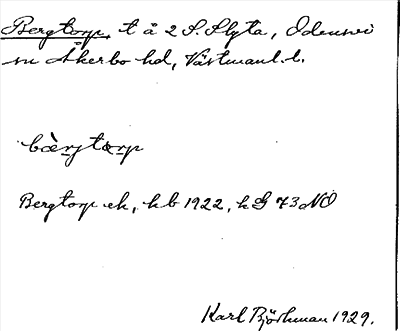 Bergtorp, t å 2 S. Slyta, Odensvi
sn Åkerbo hd, Västmanl. l.
bæ̀rjtɷrp
Bergtorp ek, hb 1922, h G 73 NO
Karl Björkman 1929.